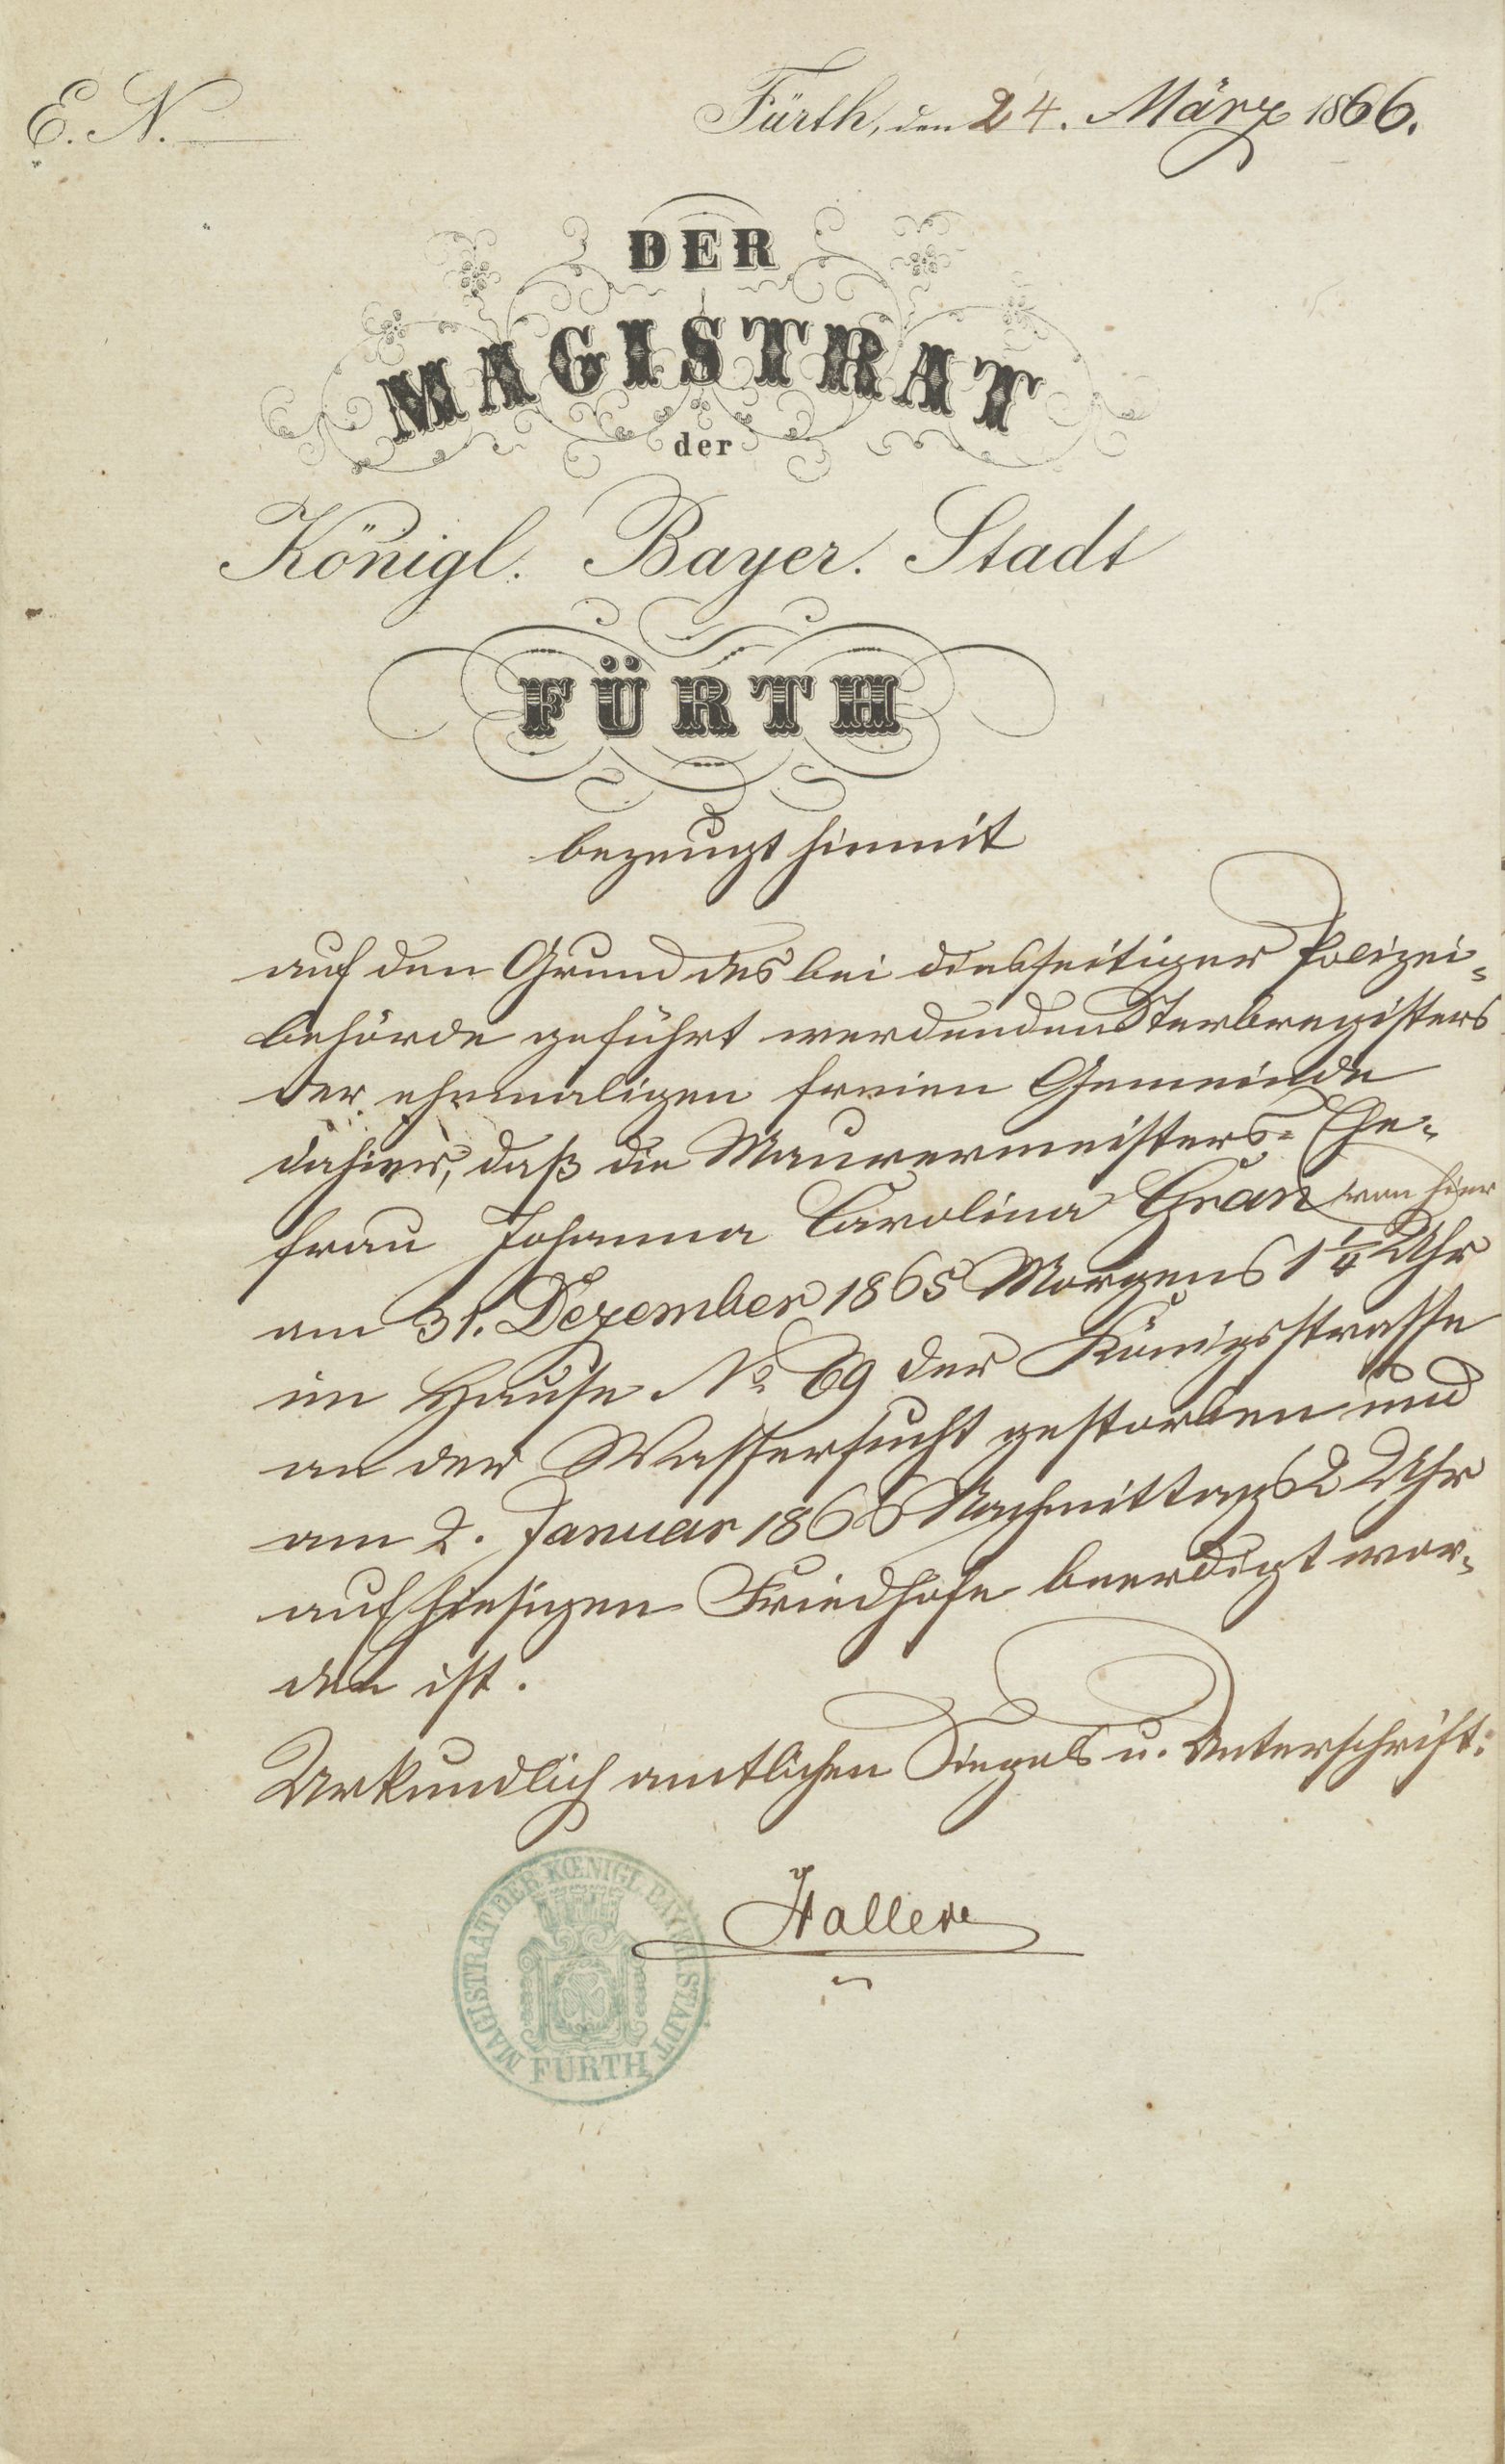 E. N.
Fürth, den 24. März 1866.
DER
MAGISTRAT
der
Königl. Bayer. Stadt
FÜRTH
bezeugt hiemit
auf den Grund des bei diesseitiger Polizei-
behörde geführt werdenden Sterberegisters
der ehemaligen freien Gemeinde
dahier, daß die Maurermeisters-Ehe-
frau Johanna Carolina Gran von hier
am 31. Dezember 1865 Morgens 1 1/4 Uhr
im Hause No. 69 der Königsstrasse
an der Wassersucht gestorben und
am 2. Januar 1866 Nachmittags 2 Uhr
auf hiesigen Friedhofe beerdigt wor-
den ist.
Urkundlich amtlichen Siegels u. Unterschrift:
Haller
MAGISTRAT DER KŒNIGL. BAYER. STADT
FÜRTH